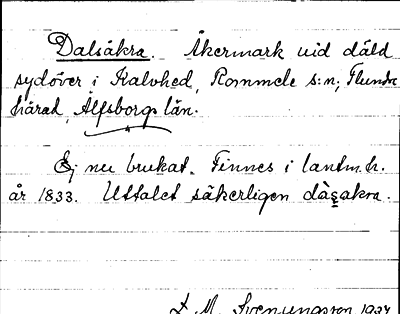 Dalsåkra. Åkermark vid däld
sydöver i Kalvhed, Rommele s:n, Flundre
härad, Älfsborgs län.
Ej nu brukat. Finnes i lantm.h.
år 1833. Uttalet säkerligen dàsakra.
L. M. Svenungsson 1937